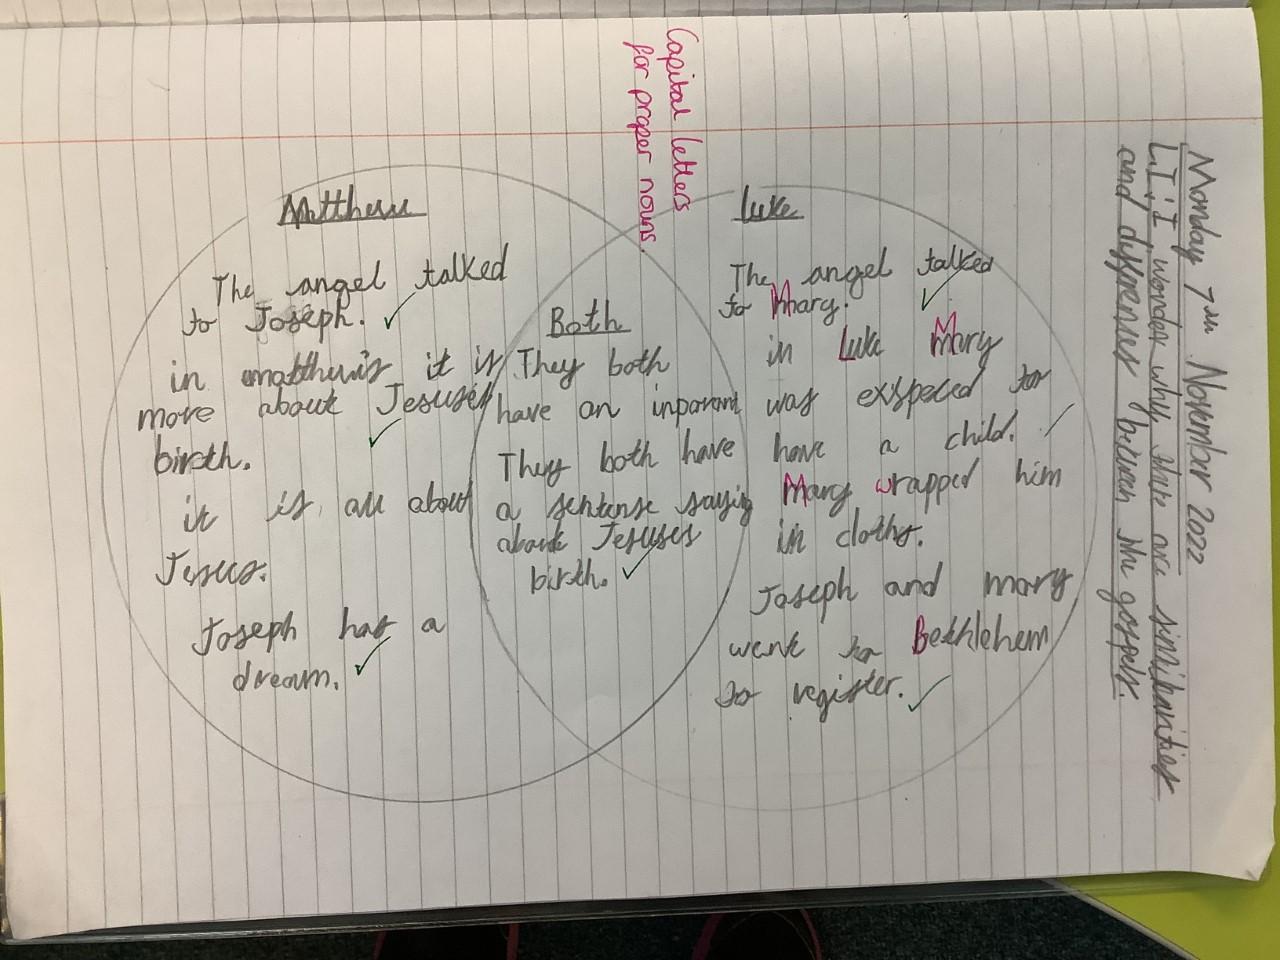 Monday 7th Novembar 2022
L.I: I wonder why there are similarities
and diffrenses between the gospels.
Capital letters
for proper nouns.
Matthew
The angel talked
to Joseph.
in matthuws it is
more about Jesuses
birth.
it is all about
Jesus.
Joseph has a
dream.
Both
They both
have an inporant
They both have
a sentense saying
about Jesuses
birth.
Luke
The angel talked
to Mary.
in Luke Mary
was exspeced to
have a child.
Mary wrapped him
in cloths.
Joseph and mary
went to Bethlehem
to register.